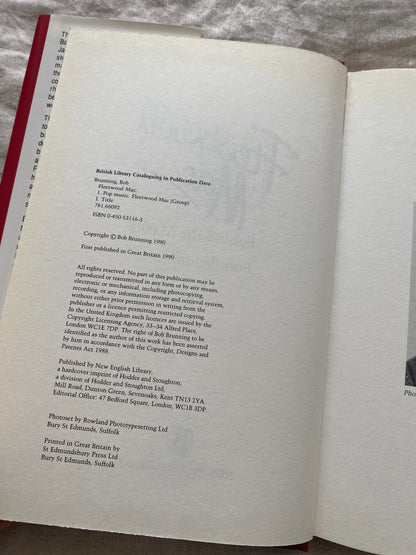 British Library Cataloguing in Publication Data
Brunning, Bob
Fleetwood Mac.
1. Pop music. Fleetwood Mac (Group)
I. Title
781.66092
ISBN 0-450-53116-3
Copyright © Bob Brunning 1990
First published in Great Britain 1990
All rights reserved. No part of this publication may be
reproduced or transmitted in any form or by any means,
electronic or mechanical, including photocopying,
recording, or any information storage and retrieval system,
without either prior permission in writing from the
publisher or a licence permitting restricted copying.
In the United Kingdom such licences are issued by the
Copyright Licensing Agency, 33–34 Alfred Place,
London WC1E 7DP. The right of Bob Brunning to be
identified as the author of this work has been asserted
by him in accordance with the Copyright, Designs and
Patents Act 1988.
Published by New English Library,
a hardcover imprint of Hodder and Stoughton,
a division of Hodder and Stoughton Ltd,
Mill Road, Dunton Green, Sevenoaks, Kent TN13 2YA.
Editorial Office: 47 Bedford Square, London, WC1B 3DP.
Photoset by Rowland Phototypesetting Ltd
Bury St Edmunds, Suffolk
Printed in Great Britain by
St Edmundsbury Press Ltd
Bury St Edmunds, Suffolk